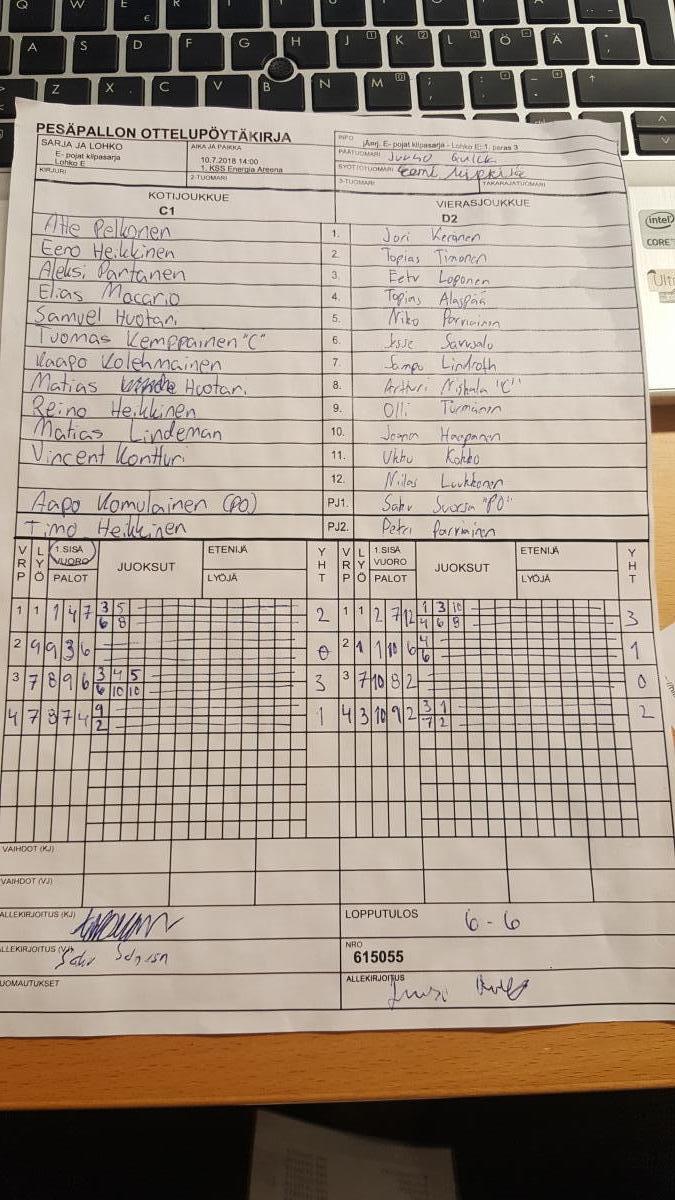 Q W E R T Y U I O P Å
€
A S D F G H J K L Ö Ä
Z X C V B N M
intel
CORE
Ulti
PESÄPALLON OTTELUPÖYTÄKIRJA
SARJA JA LOHKO
E- pojat kilpasarja
Lohko E
AIKA JA PAIKKA
10.7.2018 14:00
1. KSS Energia Areena
INFO
jAnj. E- pojat kilpasarja - Lohko E: 1. paras 3
PÄÄTUOMARI
SYÖTTÖTUOMARI
KIRJURI
2-TUOMARI
3-TUOMARI
TAKARAJATUOMARI
KOTIJOUKKUE
C1
VIERASJOUKKUE
D2
Atte Pelkonen 1. Joni Keränen
Eero Heikkinen 2. Topias Timonen
Aleksi Partanen 3. Eetu Loponen
Elias Macario 4. Topias Alaspää
Samuel Huotari 5. Niko Parviainen
Tuomas Kemppainen "C" 6. Jesse Sarvvalo
Kaapo Kolehmainen 7. Sampo Lindroth
Matias Huotari 8. Artturi Niskala "C"
Reino Heikkinen 9. Olli Turmanen
Matias Lindeman 10. Joona Haapanen
Vincent Kontturi 11. Ukko Kokko
12. Niilas Luukkonen
Aapo Komulainen (PO) PJ1. Saku Suorsa "PO"
Timo Heikkinen PJ2. Petri Parviainen
VRP LYÖ 1.SISÄVUORO PALOT JUOKSUT ETENIJÄ LYÖJÄ YHT VRP LYÖ 1.SISÄ VUORO PALOT JUOKSUT ETENIJÄ LYÖJÄ YHT
1 1 1 4 7 3 5 2 1 1 2 7 12 1 3 10 3
6 8 4 6 8
2 9 9 3 6 0 2 1 1 10 6 4 1
6
3 7 8 9 6 3 4 5 3 3 7 10 8 2 0
6 10 10
4 7 8 7 4 9 1 4 3 10 9 2 3 1 2
2 7 2
VAIHDOT (KJ)
VAIHDOT (VJ)
ALLEKIRJOITUS (KJ)
LOPPUTULOS 6 - 6
ALLEKIRJOITUS (VJ) Saku Suorsa
NRO
615055
UOMAUTUKSET
ALLEKIRJOITUS